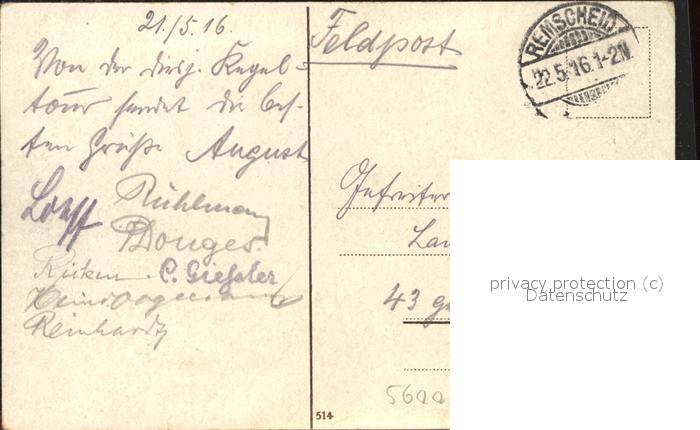 21./5.16.
Von der diesj. Kegel=
tour sendet die bes-
ten Grüße August
Rühlmann
P Donges.
Ricken C. Giessler
Reinhardt
Feldpost
REMSCHEID
22.5.16.1-2N
Gefreiter
Lan
43
5600
514
privacy protection (c)
Datenschutz